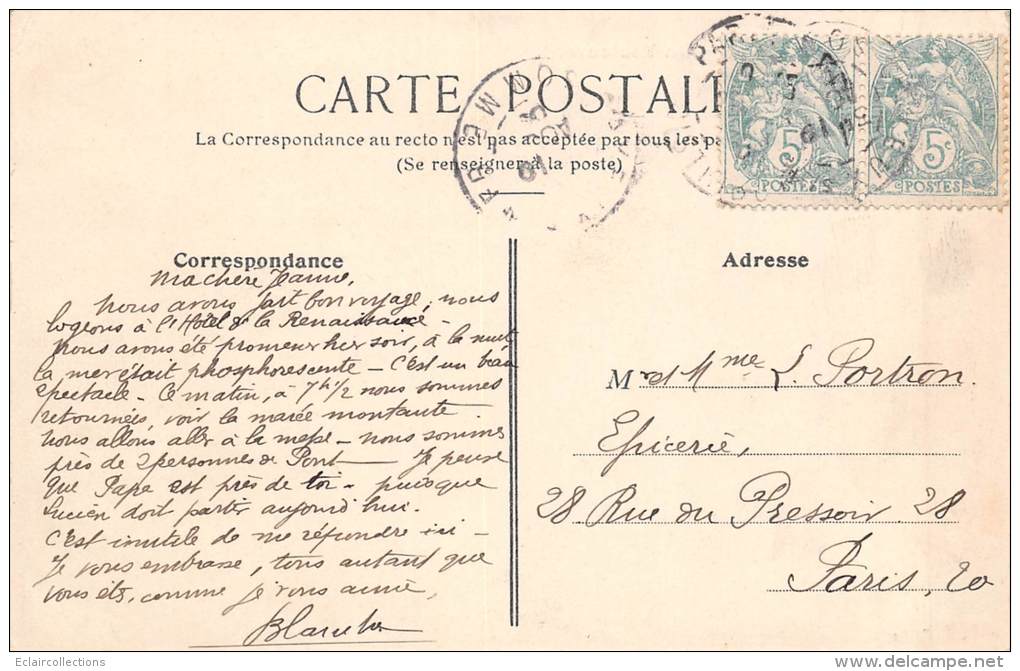 CARTE POSTALE
La Correspondance au recto n'est pas acceptée par tous les pa
(Se renseigner à la poste)
5c 5c
POSTES POSTES
Correspondance
Ma chère Jeanne,
nous avons fait bon voyage, nous
logeons à l'Hôtel de la Renaissance -
nous avons été promener hier soir, à la nuit
la mer était phosphorescente - C'est un beau
spectacle - Ce matin, à 7h 1/2 nous sommes
retournées, voir la marée montante.
nous allons aller à la messe - nous sommes
près de 2 personnes de Pont - Je pense
que Papa est près de toi - puisque
Lucien doit partir aujourd'hui.
C'est inutile de me répondre ici -
Je vous embrasse, tous autant que
vous êtes, comme je vous aime,
Blanche
Adresse
M r et Mme L. Portron.
Epicerie,
28 Rue du Pressoir 28
Paris, 20
Eclaircollections
www.delcampe.net